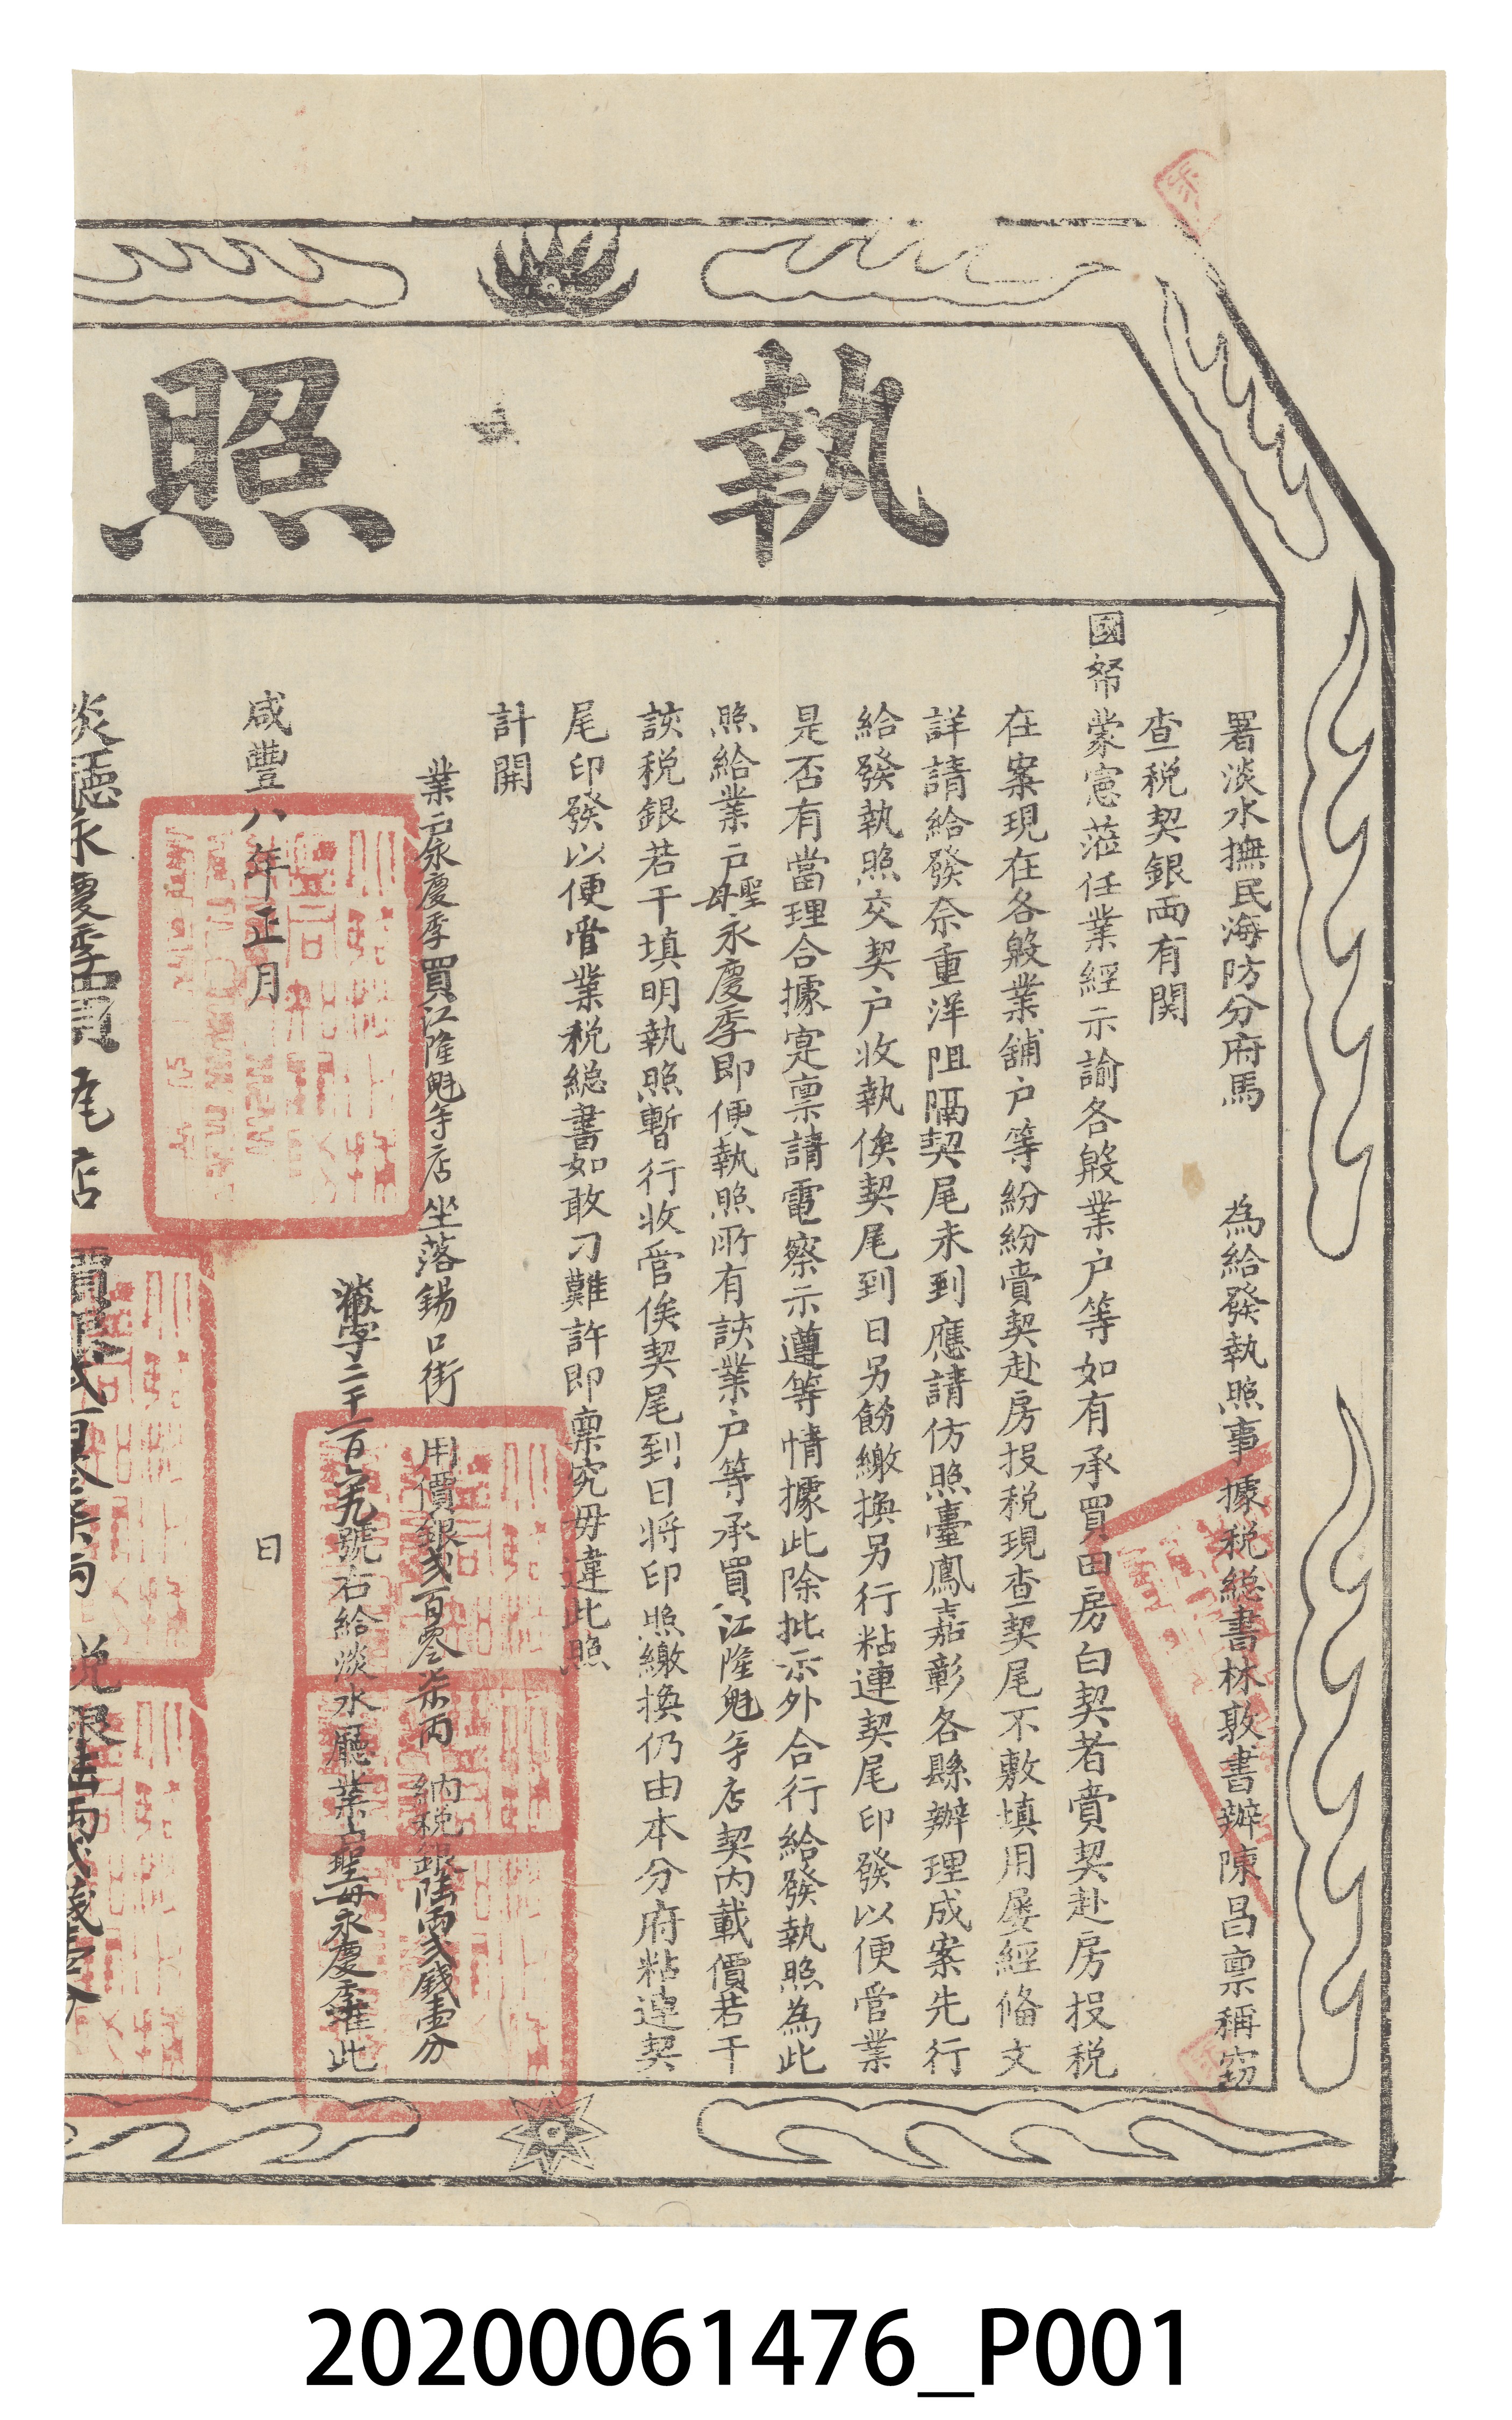 執照
署淡水撫民海防分府馬　為給發執照事據税総書林敦書辦陳昌禀稱竊
查税契銀両有関
國帑蒙憲蒞任業經示諭各殷業户等如有承買田房白契者賫契赴房投税
在案現在各殷業舖户等紛紛賫契赴房投税現查契尾不敷填用屡經偹文
詳請給發奈重洋阻隔契尾未到應請仿照臺鳳嘉彰各縣辦理成案先行
給發執照交契户收執俟契尾到日另飭繳換另行粘連契尾印發以便管業
是否有當理合據寔禀請電察示遵等情據此除批示外合行給發執照為此
照給業户聖母永慶季即便執照所有該業户等承買江隆魁等店契内載價若干
該税銀若干填明執照暫行收管俟契尾到日将印照繳換仍由本分府粘連契
尾印發以便管業税総書如敢刁難許即禀究毋違此照
計開
業户永慶季買江隆魁等店坐落錫口街　用價銀弍百零柒両　納税銀陸両弍錢壹分
號右給淡水廳業户聖母永慶季准此
咸豐八年正月　日
淡廳永慶季買
20200061476_P001